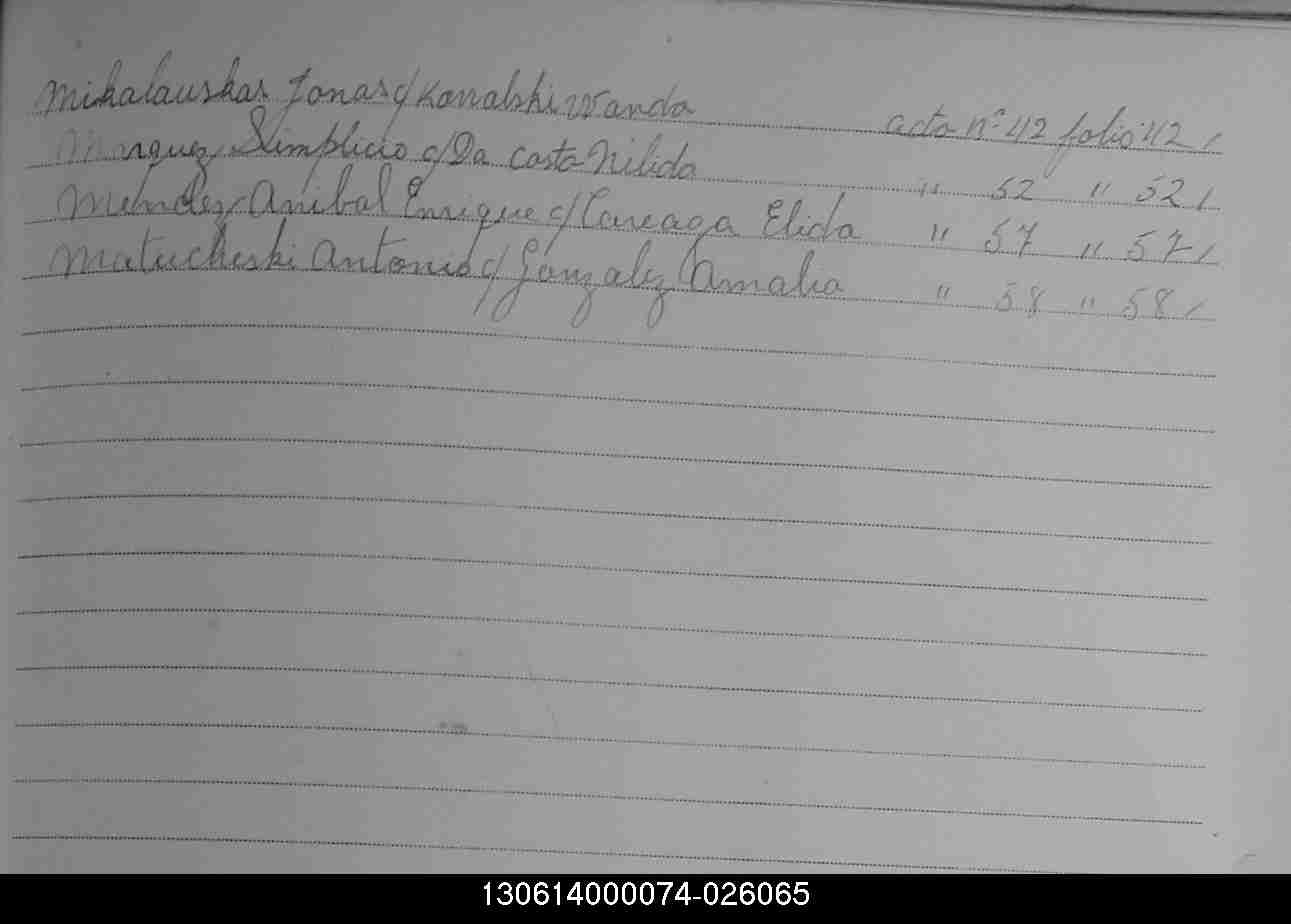 Mihalauskas Jonas c/ Kowalski Wanda acta nº 42 folio 42 /
Marquez Simplicio c/ Da Costa Nilida " 52 " 52 /
Mendez Anibal Enrique c/ Careaga Elida " 57 " 57 /
Matucheski Antonio c/ Gonzalez Amalia " 58 " 58 /
130614000074-026065